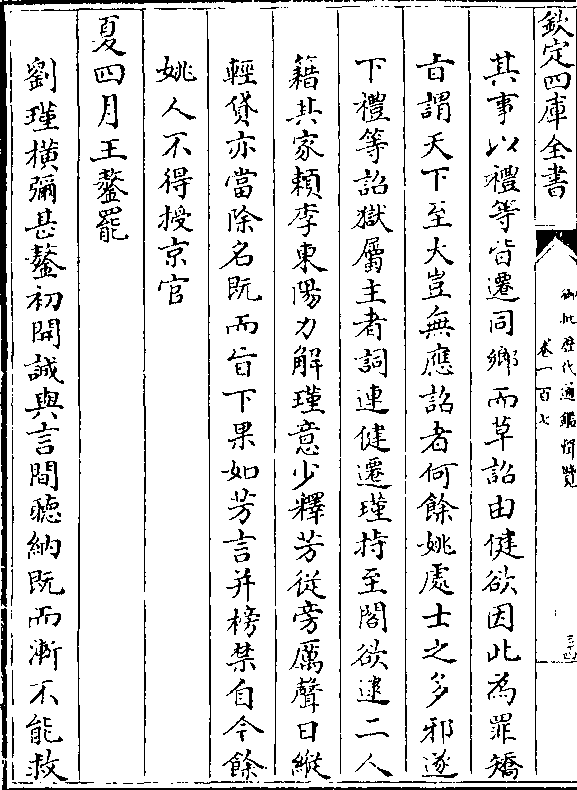 欽定四庫全書
御批歷代通鑑輯覽
卷一百七
三十四
其事以禮等皆遷同鄉而草詔由健欲因此為罪矯
㫖謂天下至大豈無應詔者何餘姚處士之多邪遂
下禮等詔獄屬主者詞連健遷瑾持至閣欲逮二人
籍其家賴李東陽力解瑾意少釋芳從旁厲聲曰縱
輕貸亦當除名既而㫖下果如芳言并榜禁自今餘
姚人不得授京官
夏四月王鏊罷
劉瑾橫彌甚鏊初開誠與言間聽納既而漸不能救